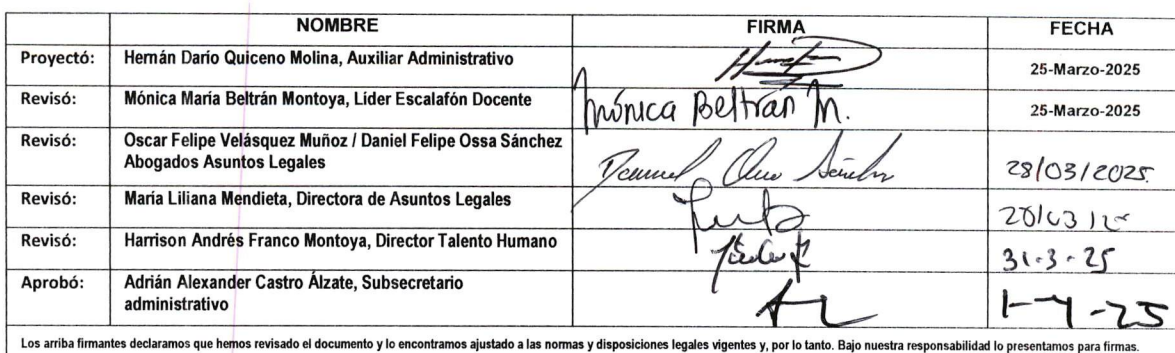 NOMBRE FIRMA FECHA
Proyectó: Hernán Darío Quiceno Molina, Auxiliar Administrativo 25-Marzo-2025
Revisó: Mónica María Beltrán Montoya, Líder Escalafón Docente Mónica Beltrán M. 25-Marzo-2025
Revisó: Oscar Felipe Velásquez Muñoz / Daniel Felipe Ossa Sánchez
Abogados Asuntos Legales Daniel Ossa Sánchez 28/03/2025
Revisó: María Liliana Mendieta, Directora de Asuntos Legales
Revisó: Harrison Andrés Franco Montoya, Director Talento Humano 31-3-25
Aprobó: Adrián Alexander Castro Álzate, Subsecretario
administrativo 1-4-25
Los arriba firmantes declaramos que hemos revisado el documento y lo encontramos ajustado a las normas y disposiciones legales vigentes y, por lo tanto. Bajo nuestra responsabilidad lo presentamos para firmas.